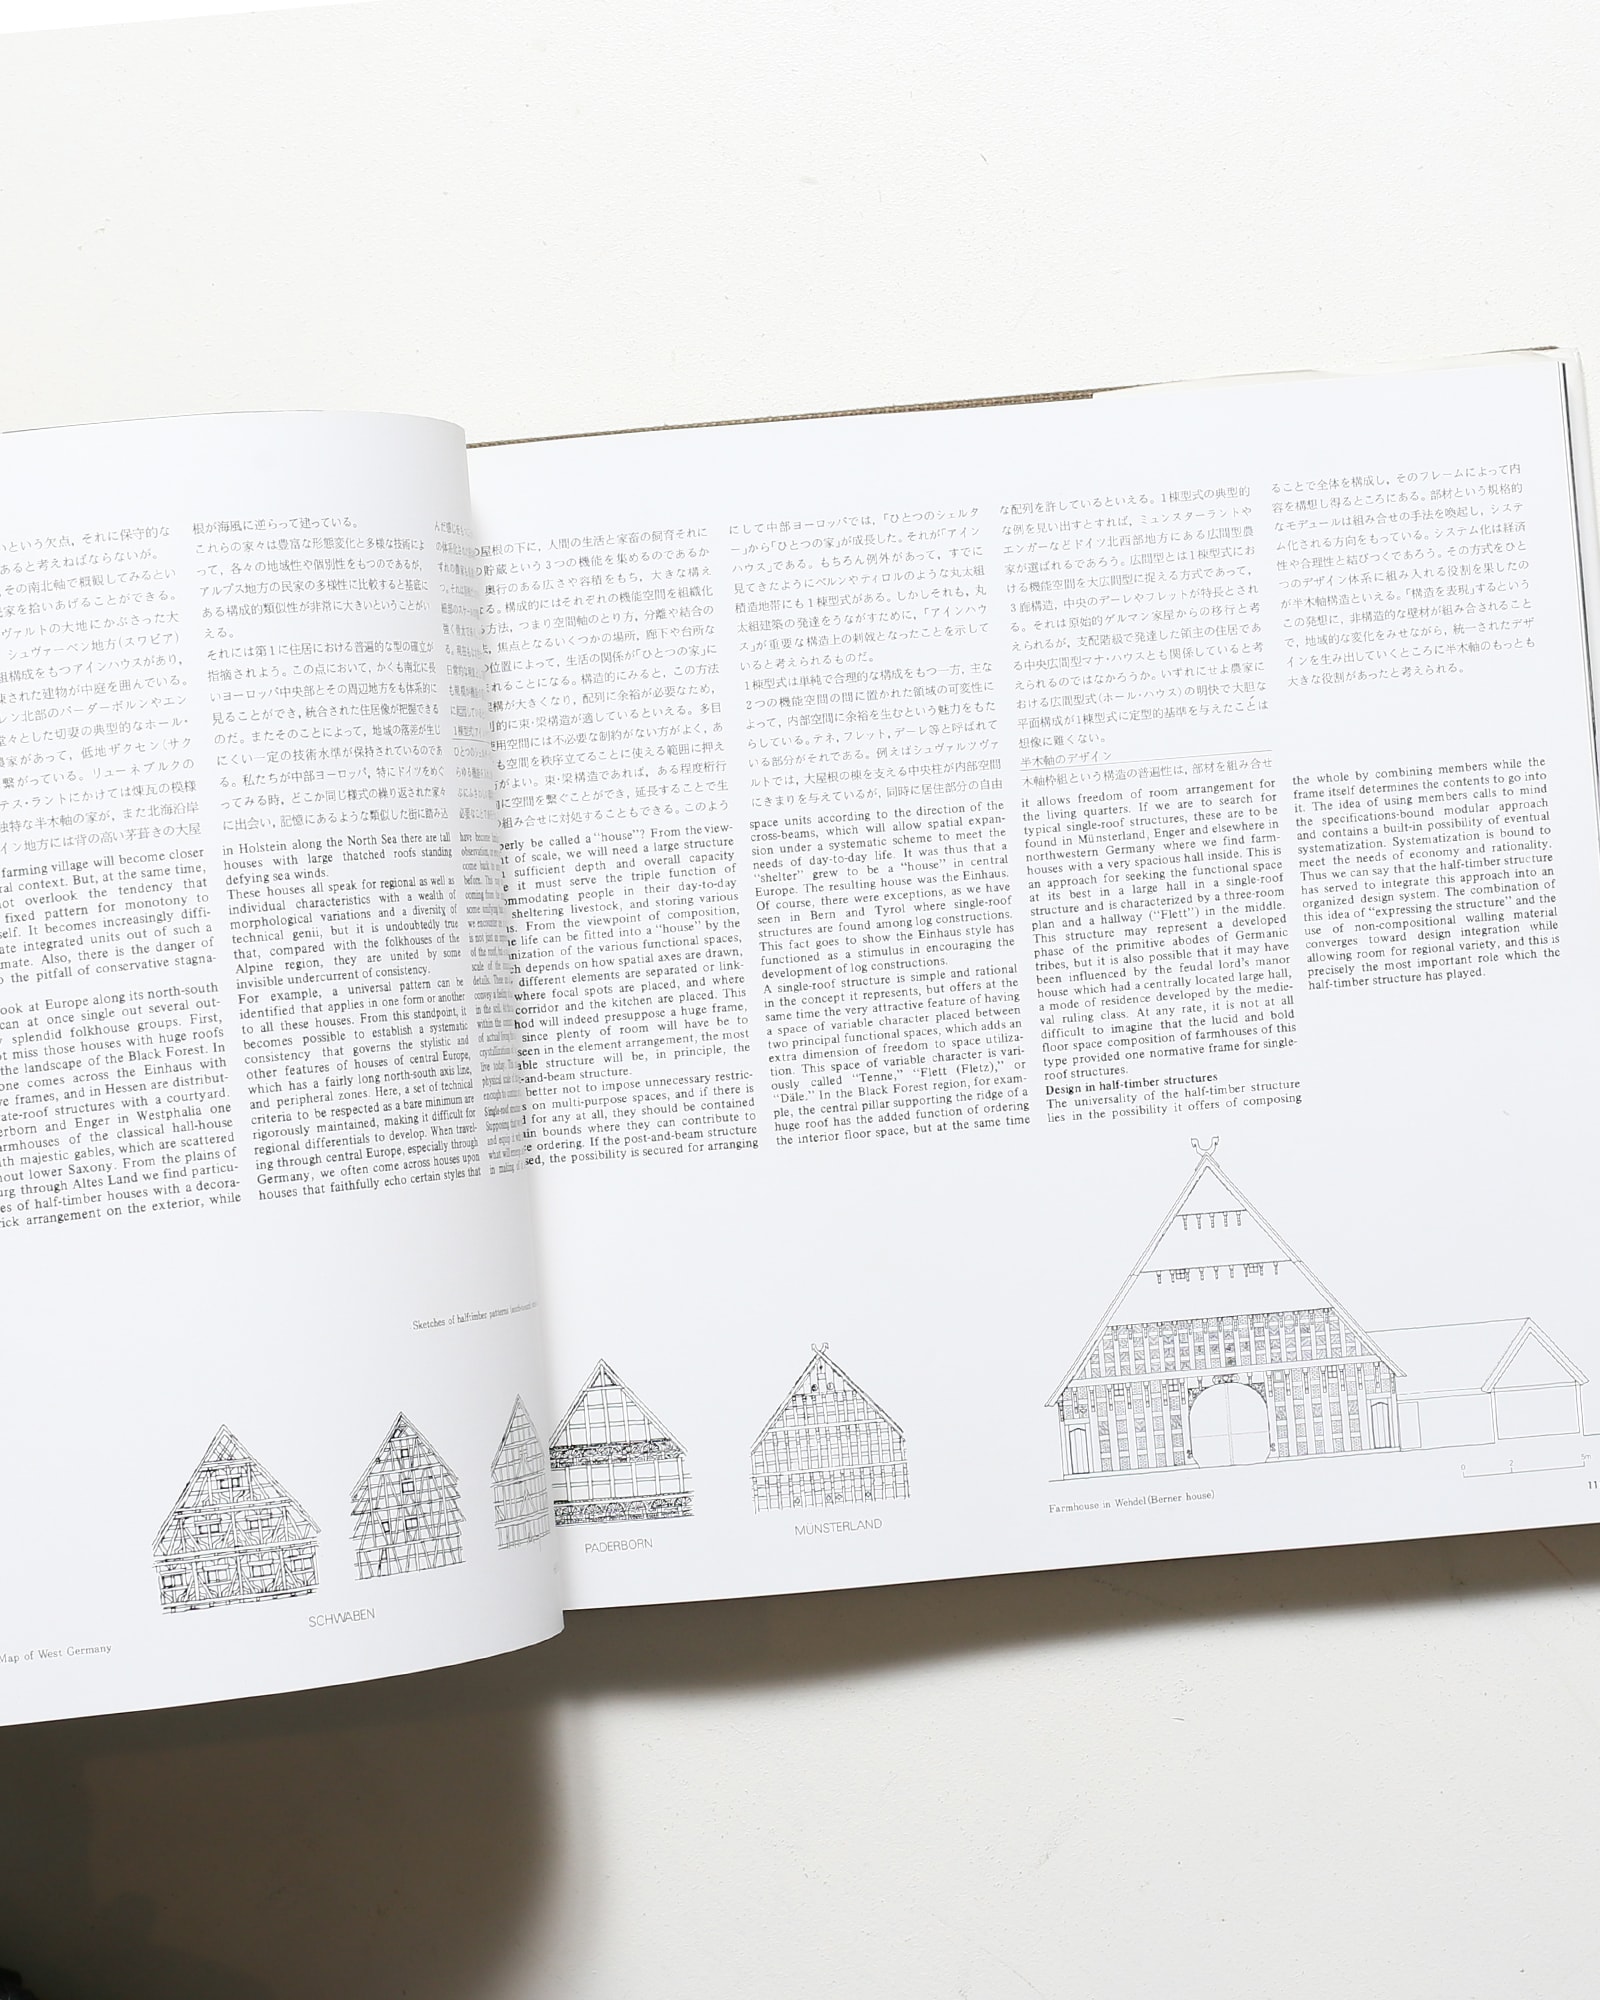 いという欠点，それに保守的な
あると考えねばならないが。
，その南北軸で概観してみるとい
民家を拾いあげることができる。
ヴァルトの大地にかぶさった大
シュヴァーベン地方(スワビア)
組構成をもつアインハウスがあり，
された建物が中庭を囲んでいる。
レン北部のパーダーボルンやエン
々とした切妻の典型的なホール・
農家があって，低地ザクセン(サク
繋がっている。リューネブルクの
テス・ラントにかけては煉瓦の模様
独特な半木軸の家が，また北海沿岸
イン地方には背の高い茅葺きの大屋
farming village will become closer
ral context. But, at the same time,
not overlook the tendency that
fixed pattern for monotony to
self. It becomes increasingly diffi-
ate integrated units out of such a
mate. Also, there is the danger of
o the pitfall of conservative stagna-
ook at Europe along its north-south
can at once single out several out-
splendid folkhouse groups. First,
ot miss those houses with huge roofs
the landscape of the Black Forest. In
one comes across the Einhaus with
ve frames, and in Hessen are distribut-
ate-roof structures with a courtyard.
erborn and Enger in Westphalia one
armhouses of the classical hall-house
th majestic gables, which are scattered
hout lower Saxony. From the plains of
urg through Altes Land we find particu-
es of half-timber houses with a decora-
rick arrangement on the exterior, while
根が海風に逆らって建っている。
これらの家々は豊富な形態変化と多様な技術によ
って，各々の地域性や個別性をもつのであるが，
アルプス地方の民家の多様性に比較すると基底に
ある構成的類似性が非常に大きいということがい
える。
それには第1に住居における普遍的な型の確立が
指摘されよう。この点において，かくも南北に長
いヨーロッパ中央部とその周辺地方をも体系的に
見ることができ，統合された住居像が把握できる
のだ。またそのことによって，地域の落差が生じ
にくい一定の技術水準が保持されているのであ
る。私たちが中部ヨーロッパ，特にドイツをめぐ
ってみる時，どこか同じ様式の繰り返された家々
に出会い，記憶にあるような類似した街に踏み込
in Holstein along the North Sea there are tall
houses with large thatched roofs standing
defying sea winds.
These houses all speak for regional as well as
individual characteristics with a wealth of
morphological variations and a diversity of
technical genii, but it is undoubtedly true
that, compared with the folkhouses of the
Alpine region, they are united by some
invisible undercurrent of consistency.
For example, a universal pattern can be
identified that applies in one form or another
to all these houses. From this standpoint, it
becomes possible to establish a systematic
consistency that governs the stylistic and
other features of houses of central Europe,
which has a fairly long north-south axis line,
and peripheral zones. Here, a set of technical
criteria to be respected as a bare minimum are
rigorously maintained, making it difficult for
regional differentials to develop. When travel-
ing through central Europe, especially through
Germany, we often come across houses upon
houses that faithfully echo certain styles that
Sketches of half-timber patterns
SCHWABEN
Map of West Germany
屋根の下に，人間の生活と家畜の飼育それに
貯蔵という3つの機能を集めるのであるか
奥行のある広さや容積をもち，大きな構え
る。構成的にはそれぞれの機能空間を組織化
方法，つまり空間軸のとり方，分離や結合の
，焦点となるいくつかの場所，廊下や台所な
位置によって，生活の関係が「ひとつの家」に
れることになる。構造的にみると，この方法
構が大きくなり，配列に余裕が必要なため，
的に束・梁構造が適しているといえる。多目
用空間には不必要な制約がない方がよく，あ
も空間を秩序立てることに使える範囲に押え
がよい。束・梁構造であれば，ある程度桁行
に空間を繋ぐことができ，延長することで生
組み合せに対処することもできる。このよう
perly be called a "house"? From the view-
t of scale, we will need a large structure
sufficient depth and overall capacity
e it must serve the triple function of
ommodating people in their day-to-day
sheltering livestock, and storing various
s. From the viewpoint of composition,
e life can be fitted into a "house" by the
nization of the various functional spaces,
ch depends on how spatial axes are drawn,
different elements are separated or link-
where focal spots are placed, and where
corridor and the kitchen are placed. This
hod will indeed presuppose a huge frame,
since plenty of room will have be to
seen in the element arrangement, the most
able structure will be, in principle, the
-and-beam structure.
better not to impose unnecessary restric-
s on multi-purpose spaces, and if there is
d for any at all, they should be contained
in bounds where they can contribute to
e ordering. If the post-and-beam structure
sed, the possibility is secured for arranging
にして中部ヨーロッパでは，「ひとつのシェルタ
ー」から「ひとつの家」が成長した。それが「アイン
ハウス」である。もちろん例外があって，すでに
見てきたようにベルンやティロルのような丸太組
積造地帯にも1棟型式がある。しかしそれも，丸
太組建築の発達をうながすために，「アインハウ
ス」が重要な構造上の刺戟となったことを示して
いると考えられるものだ。
1棟型式は単純で合理的な構成をもつ一方，主な
2つの機能空間の間に置かれた領域の可変性に
よって，内部空間に余裕を生むという魅力をもた
らしている。テネ，フレット，デーレ等と呼ばれて
いる部分がそれである。例えばシュヴァルツヴァ
ルトでは，大屋根の棟を支える中央柱が内部空間
にきまりを与えているが，同時に居住部分の自由
space units according to the direction of the
cross-beams, which will allow spatial expan-
sion under a systematic scheme to meet the
needs of day-to-day life. It was thus that a
"shelter" grew to be a "house" in central
Europe. The resulting house was the Einhaus.
Of course, there were exceptions, as we have
seen in Bern and Tyrol where single-roof
structures are found among log constructions.
This fact goes to show the Einhaus style has
functioned as a stimulus in encouraging the
development of log constructions.
A single-roof structure is simple and rational
in the concept it represents, but offers at the
same time the very attractive feature of having
a space of variable character placed between
two principal functional spaces, which adds an
extra dimension of freedom to space utiliza-
tion. This space of variable character is vari-
ously called "Tenne," "Flett (Fletz)," or
"Däle." In the Black Forest region, for exam-
ple, the central pillar supporting the ridge of a
huge roof has the added function of ordering
the interior floor space, but at the same time
な配列を許しているといえる。1棟型式の典型的
な例を見い出すとすれば，ミュンスターラントや
エンガーなどドイツ北西部地方にある広間型農
家が選ばれるであろう。広間型とは1棟型式にお
ける機能空間を大広間型に捉える方式であって，
3廊構造，中央のデーレやフレットが特長とされ
る。それは原始的ゲルマン家屋からの移行と考
えられるが，支配階級で発達した領主の住居であ
る中央広間型マナ・ハウスとも関係していると考
えられるのではなかろうか。いずれにせよ農家に
おける広間型式(ホール・ハウス)の明快で大胆な
平面構成が1棟型式に定型的基準を与えたことは
想像に難くない。
半木軸のデザイン
木軸枠組という構造の普遍性は，部材を組み合せ
it allows freedom of room arrangement for
the living quarters. If we are to search for
typical single-roof structures, these are to be
found in Münsterland, Enger and elsewhere in
northwestern Germany where we find farm-
houses with a very spacious hall inside. This is
an approach for seeking the functional space
at its best in a large hall in a single-roof
structure and is characterized by a three-room
plan and a hallway ("Flett") in the middle.
This structure may represent a developed
phase of the primitive abodes of Germanic
tribes, but it is also possible that it may have
been influenced by the feudal lord's manor
house which had a centrally located large hall,
a mode of residence developed by the medie-
val ruling class. At any rate, it is not at all
difficult to imagine that the lucid and bold
floor space composition of farmhouses of this
type provided one normative frame for single-
roof structures.
Design in half-timber structures
The universality of the half-timber structure
lies in the possibility it offers of composing
ることで全体を構成し，そのフレームによって内
容を構想し得るところにある。部材という規格的
なモデュールは組み合せの手法を喚起し，システ
ム化される方向をもっている。システム化は経済
性や合理性と結びつくであろう。その方式をひと
つのデザイン体系に組み入れる役割を果したの
が半木軸構造といえる。「構造を表現」するという
この発想に，非構造的な壁材が組み合されること
で，地域的な変化をみせながら，統一されたデザ
インを生み出していくところに半木軸のもっとも
大きな役割があったと考えられる。
the whole by combining members while the
frame itself determines the contents to go into
it. The idea of using members calls to mind
the specifications-bound modular approach
and contains a built-in possibility of eventual
systematization. Systematization is bound to
meet the needs of economy and rationality.
Thus we can say that the half-timber structure
has served to integrate this approach into an
organized design system. The combination of
this idea of "expressing the structure" and the
use of non-compositional walling material
converges toward design integration while
allowing room for regional variety, and this is
precisely the most important role which the
half-timber structure has played.
PADERBORN
MÜNSTERLAND
Farmhouse in Wehdel (Berner house)
0 2 5m
11